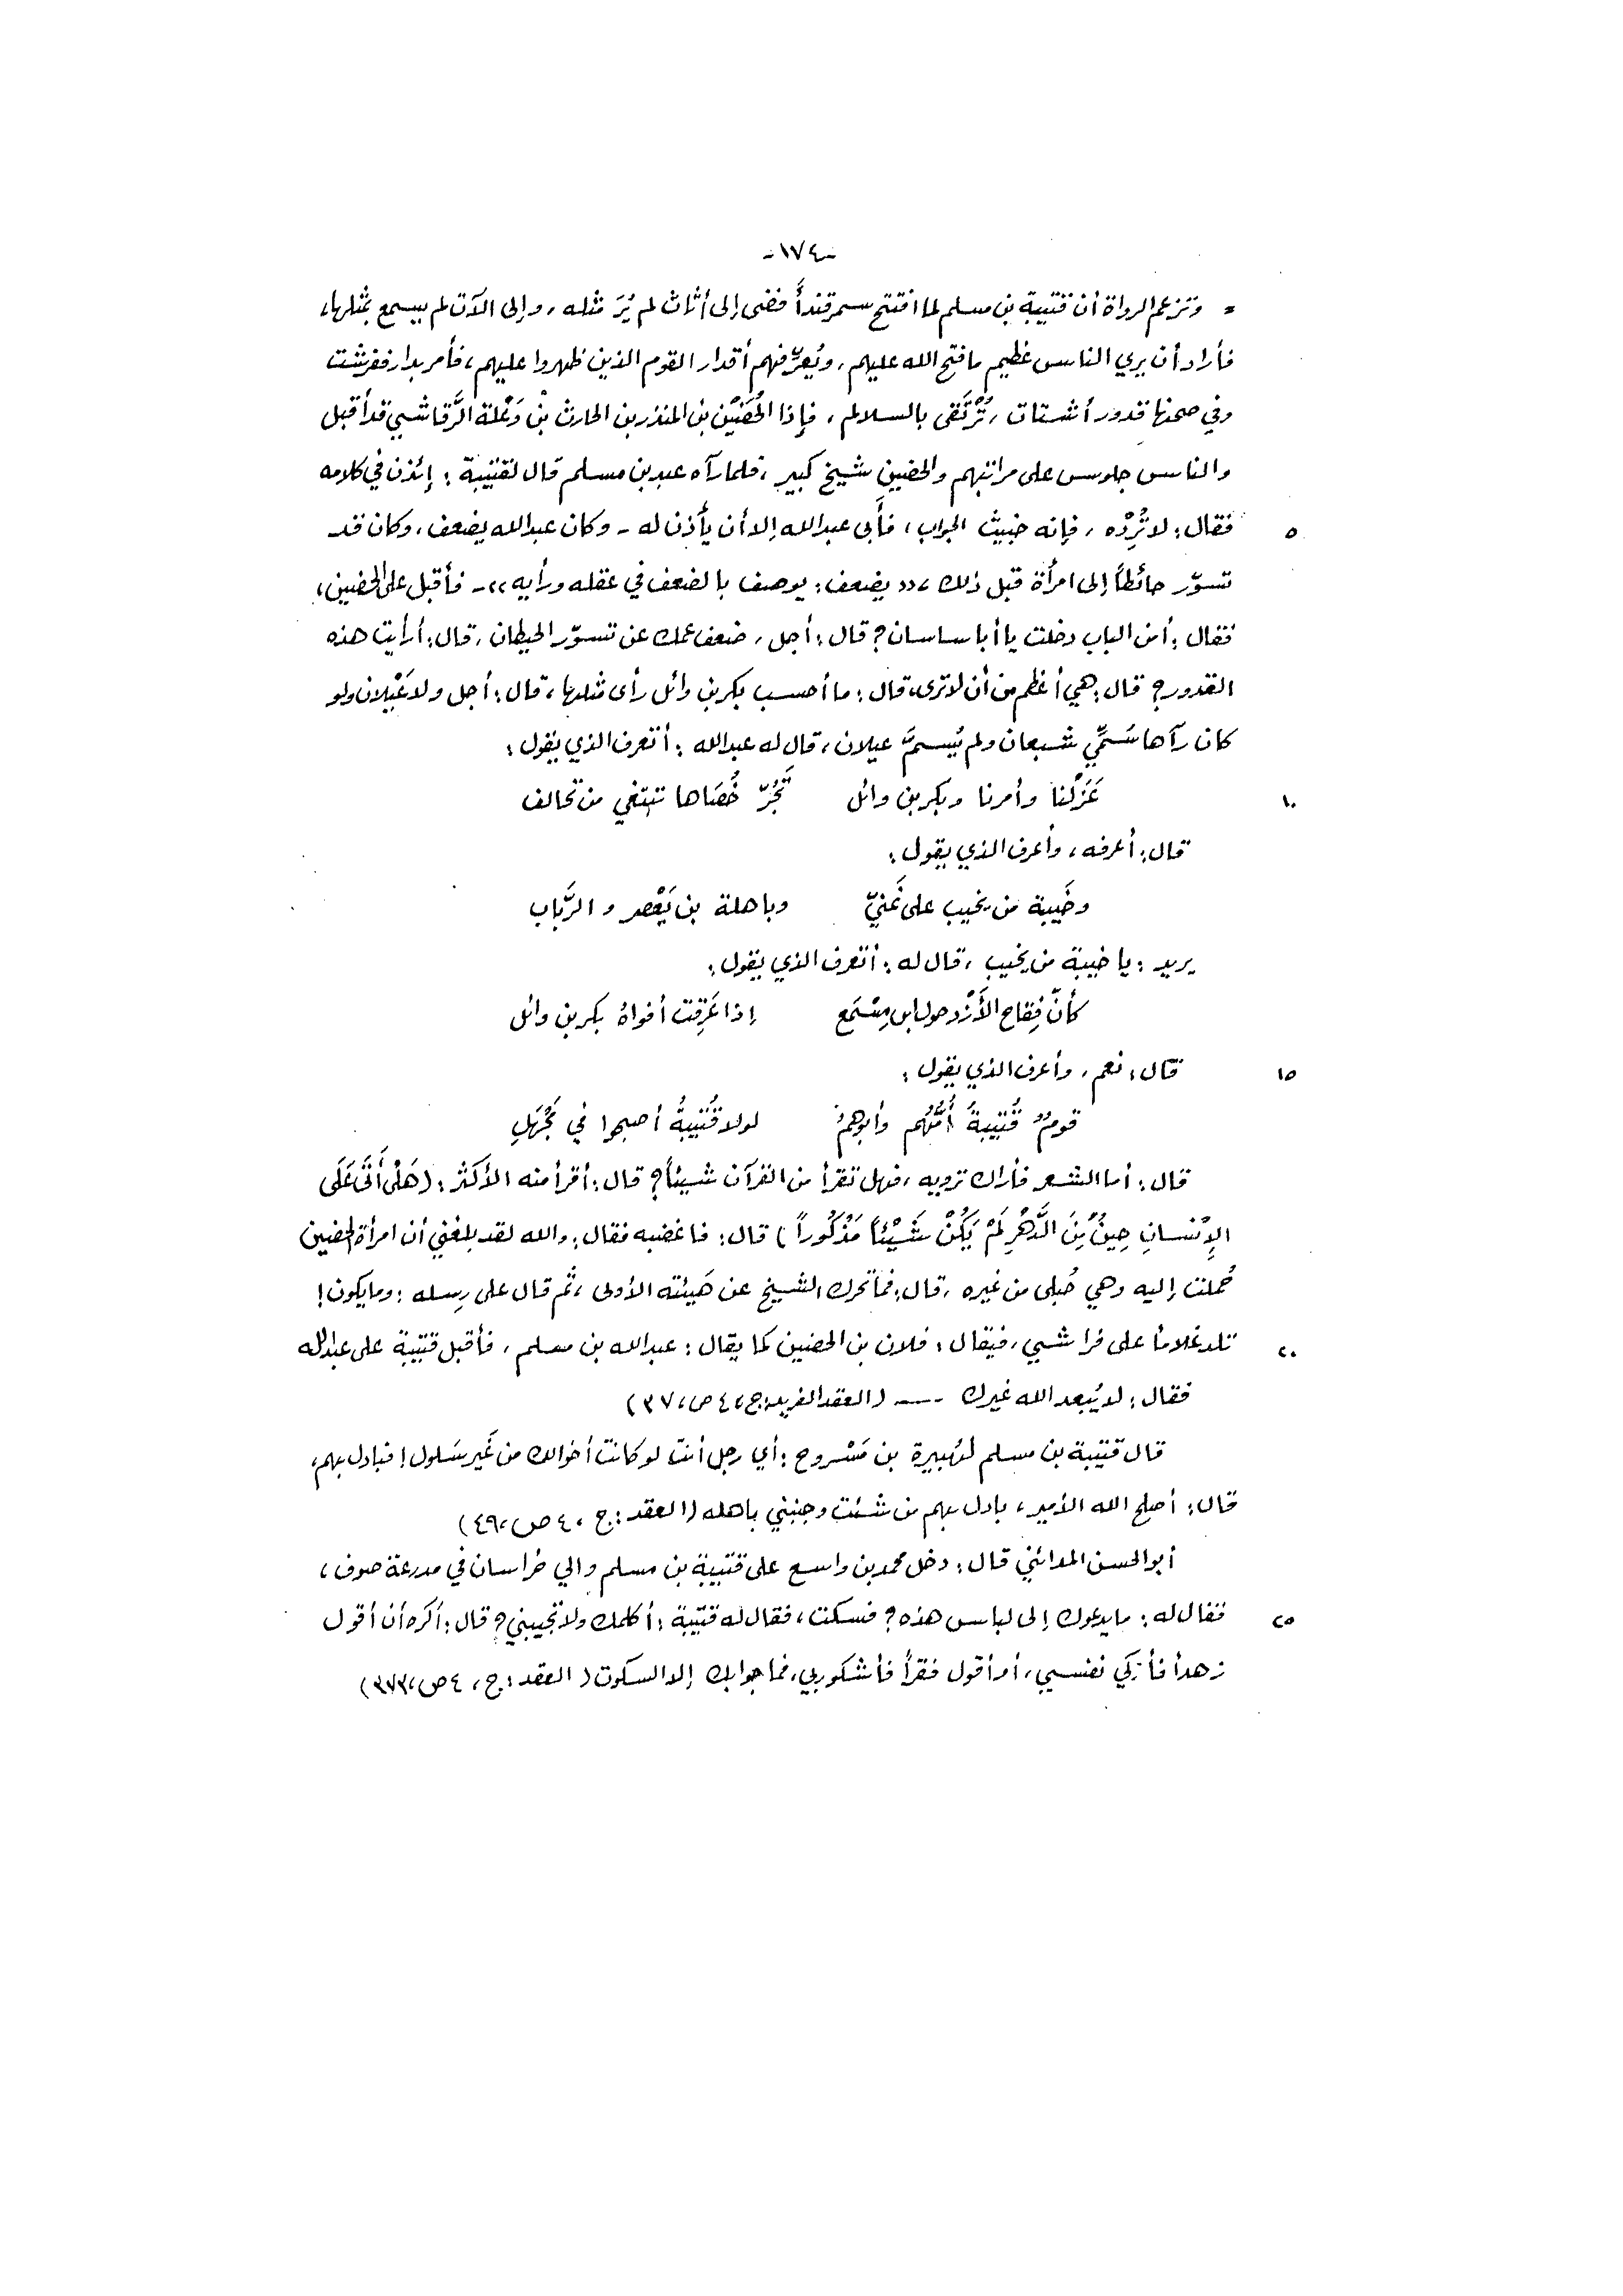 -١٧٤-
= وتزعم الرواة أن قتيبة بن مسلم لما افتتح سمرقنداً فضى إلى أثاث لم يُرَ مثله، وإلى آلات لم يسمع بمثلها،
فأراد أن يري الناس عظيم ما فتح الله عليهم، ويُعرّفهم أقدار القوم الذين ظهروا عليهم، فأمر بدار ففرشت
وفي صحنها قدور أشتات، تُرْتَقى بالسلالم، فإذا الحُضَيْن بن المنذر بن الحارث بْن وَعْلة الرَّقاشي قد أقبل
والناس جلوس على مراتبهم والحضين شيخ كبير، فلما رآه عبد بن مسلم قال لقتيبة: إئذن في كلامه
٥ فقال: لا تُرِدْه، فإنه خبيث الجواب، فأبى عبدالله إلا أن يأذن له - وكان عبدالله يضعف، وكان قد
تسوّر حائطاً إلى امرأة قبل ذلك، «يضعف: يوصف بالضعف في عقله ورأيه» - فأقبل على الحضين،
فقال: أمن الباب دخلت يا أبا ساسان؟ قال: أجل، ضعف عمك عن تسوّر الحيطان، قال: أرأيت هذه
القدور؟ قال: هي أعظم من أن لا ترى، قال: ما أحسب بكر بن وائل رأى مثلها، قال: أجل ولا عَيْلان ولو
كان رآها سُمِّي شبعان ولم يُسمَّ عيلان، قال له عبدالله: أتعرف الذي يقول:
١٠ عَزَلْنا وأمرنا وبكر بن وائل تَجُرّ خُصَاها تبتغي من تحالف
قال: أعرفه، وأعرف الذي يقول:
وخَيبة من يخيب على غَنيّ وباهلة بن يَعْصر والرَّباب
يريد: يا خيبة من يخيب، قال له: أتعرف الذي يقول:
كأنّ فِقاح الأَزْد حول ابن مِسْمَع إذا عَرِقت أفواهُ بكر بن وائل
١٥ قال: نعم، وأعرف الذي يقول:
قومٌ قُتيبةُ أُمُّهُم وأبوهمُ لولا قُتيبةُ أصبحوا في مَجْهَلِ
قال: أما الشعر فأراك ترويه، فهل تقرأ من القرآن شيئاً؟ قال: أقرأ منه الأكثر: (هَلْ أَتَى عَلَى
الإِنْسانِ حِينٌ مِنَ الدَّهْرِ لَمْ يَكُنْ شَيْئاً مَذْكُوراً) قال: فاغضبه فقال: والله لقد بلغني أن امرأة الحضين
حُملت إليه وهي حُبلى من غيره، قال: فما تحرك الشيخ عن هَيئته الأولى، ثم قال على رِسله: وما يكون!
٢٠ تلد غلاماً على فراشي، فيقال: فلان بن الحضين كما يقال: عبدالله بن مسلم، فأقبل قتيبة على عبدالله
فقال: لا يُبعد الله غيرك --- (العقد الفريد: ج، ٤ ص، ٣٧)
قال قتيبة بن مسلم لهُبيرة بن مَسْروح: أي رجل أنت لو كانت أخوالك من غَير سَلول! فبادل بهم،
قال: أصلح الله الأمير، بادل بهم من شئت وجنبني باهله (العقد: ج، ٤ ص، ٤٩)
أبو الحسن المدائني قال: دخل محمد بن واسع على قتيبة بن مسلم والي خراسان في مدرعة صوف،
٢٥ فقال له: ما يدعوك إلى لباس هذه؟ فسكت، فقال له قتيبة: أكلمك ولا تجيبني؟ قال: أكره أن أقول
زهداً فأزكي نفسي، أو أقول فقراً فأشكو ربي، فما جوابك إلا السكوت (العقد: ج، ٤ ص، ٣٧٣)